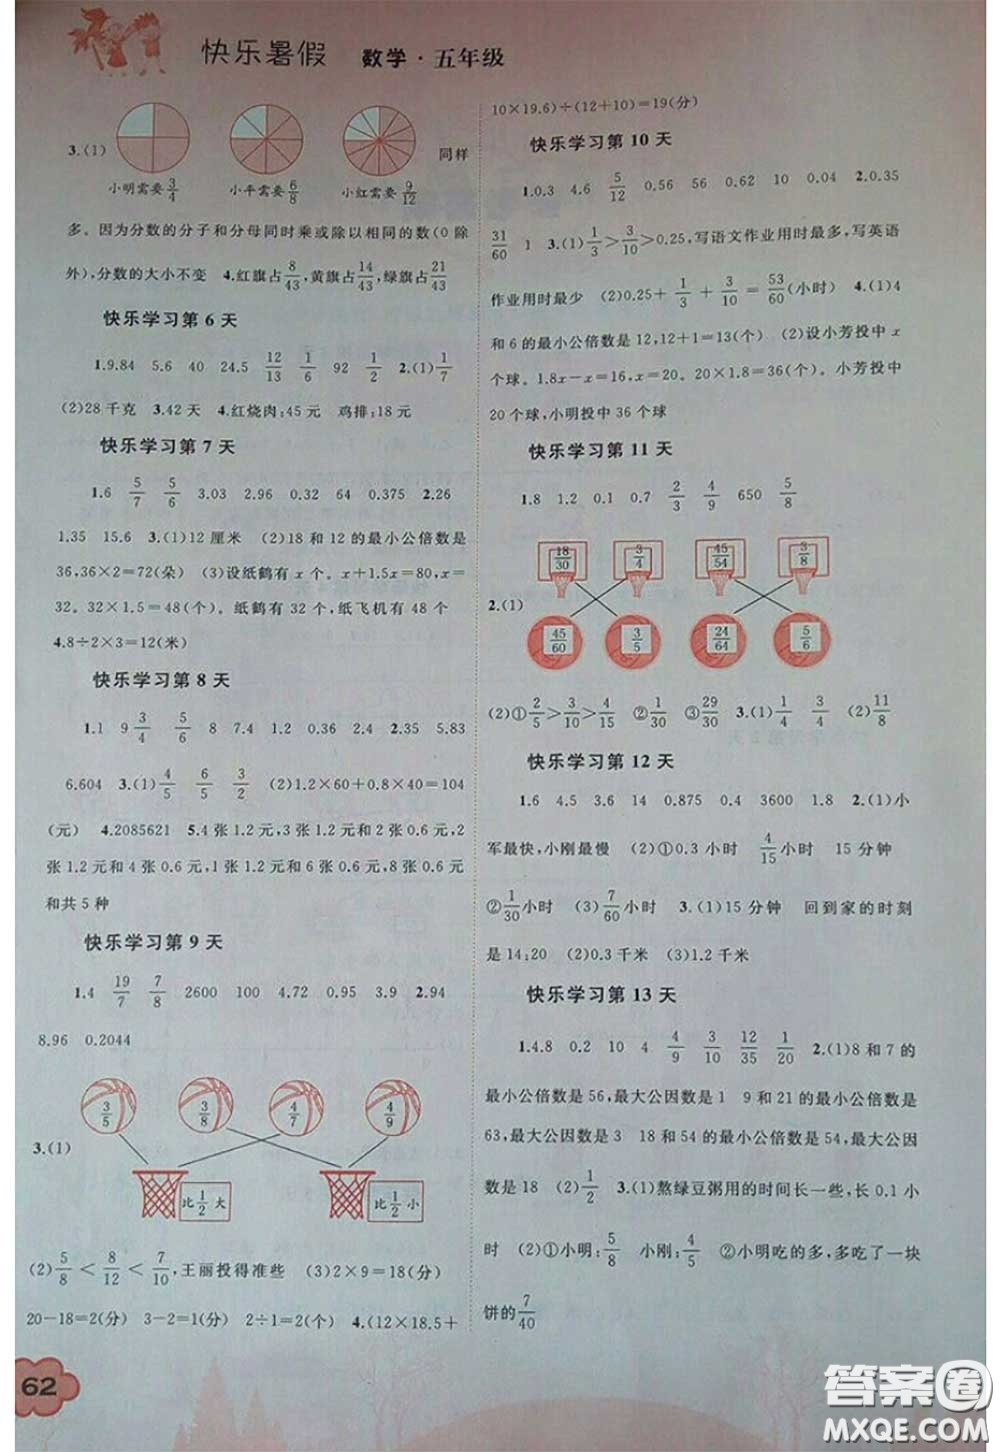 快乐暑假 数学·五年级
3.(1) 同样
小明需要3/4 小平需要6/8 小红需要9/12
多。因为分数的分子和分母同时乘或除以相同的数(0除
外),分数的大小不变 4.红旗占8/43,黄旗占14/43,绿旗占21/43
快乐学习第 6 天
1.9.84 5.6 40 24.5 12/13 1/6 92 1/2 2.(1)1/7
(2)28千克 3.42天 4.红烧肉:45元 鸡排:18元
快乐学习第 7 天
1.6 5/7 5/6 3.03 2.96 0.32 64 0.375 2.26
1.35 15.6 3.(1)12厘米 (2)18和12的最小公倍数是
36,36×2=72(朵) (3)设纸鹤有x个。x+1.5x=80,x=
32。32×1.5=48(个)。纸鹤有32个,纸飞机有48个
4.8÷2×3=12(米)
快乐学习第 8 天
1.1 9 3/4 5/6 8 7.4 1.2 0.36 2.4 2.35 5.83
6.604 3.(1)4/5 6/5 3/2 (2)1.2×60+0.8×40=104
(元) 4.2085621 5.4张1.2元,3张1.2元和2张0.6元,2
张1.2元和4张0.6元,1张1.2元和6张0.6元,8张0.6元
和共5种
快乐学习第 9 天
1.4 19/7 7/8 2600 100 4.72 0.95 3.9 2.94
8.96 0.2044
3/5 3/8 4/7 4/9
3.(1)
比1/2大 比1/2小
(2)5/8<8/12<7/10,王丽投得准些 (3)2×9=18(分)
20-18=2(分) 3-2=1(分) 2÷1=2(个) 4.(12×18.5+
62
10×19.6)÷(12+10)=19(分)
快乐学习第 10 天
1.0.3 4.6 5/12 0.56 56 0.62 10 0.04 2.0.35
31/60 1 3.(1)1/3>3/10>0.25,写语文作业用时最多,写英语
作业用时最少 (2)0.25+1/3+3/10=53/60(小时) 4.(1)4
和6的最小公倍数是12,12+1=13(个) (2)设小芳投中x
个球。1.8x-x=16,x=20。20×1.8=36(个)。小芳投中
20个球,小明投中36个球
快乐学习第 11 天
1.8 1.2 0.1 0.7 2/3 4/9 650 5/8
18/30 3/4 45/54 3/8
2.(1)
45/60 3/5 24/64 5/6
(2)①2/5>3/10>4/15 ②1/30 ③29/30 3.(1)1/4 3/4 (2)11/8
快乐学习第 12 天
1.6 4.5 3.6 14 0.875 0.4 3600 1.8 2.(1)小
军最快,小刚最慢 (2)①0.3小时 4/15小时 15分钟
②1/30小时 (3)7/60小时 3.(1)15分钟 回到家的时刻
是14:20 (2)0.3千米 (3)1.2千米
快乐学习第 13 天
1.4.8 0.2 10 4 4/9 3/10 12/35 1/20 2.(1)8和7的
最小公倍数是56,最大公因数是1 9和21的最小公倍数是
63,最大公因数是3 18和54的最小公倍数是54,最大公因
数是18 (2)1/2 3.(1)熬绿豆粥用的时间长一些,长0.1小
时 (2)①小明:5/8 小刚:4/5 ②小明吃的多,多吃了一块
饼的7/40
答案圈
MXQE.COM